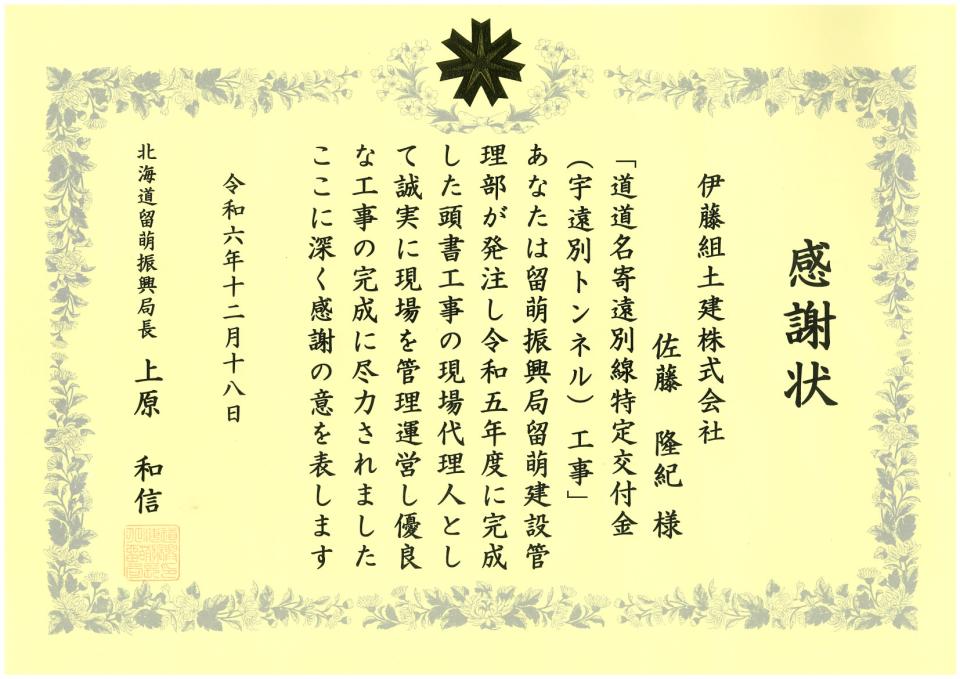 感謝状
伊藤組土建株式会社
佐藤 隆紀 様
「道道名寄遠別線特定交付金
(宇遠別トンネル)工事」
あなたは留萌振興局留萌建設管
理部が発注し令和五年度に完成
した頭書工事の現場代理人とし
て誠実に現場を管理運営し優良
な工事の完成に尽力されました
ここに深く感謝の意を表します
令和六年十二月十八日
北海道留萌振興局長 上原 和信